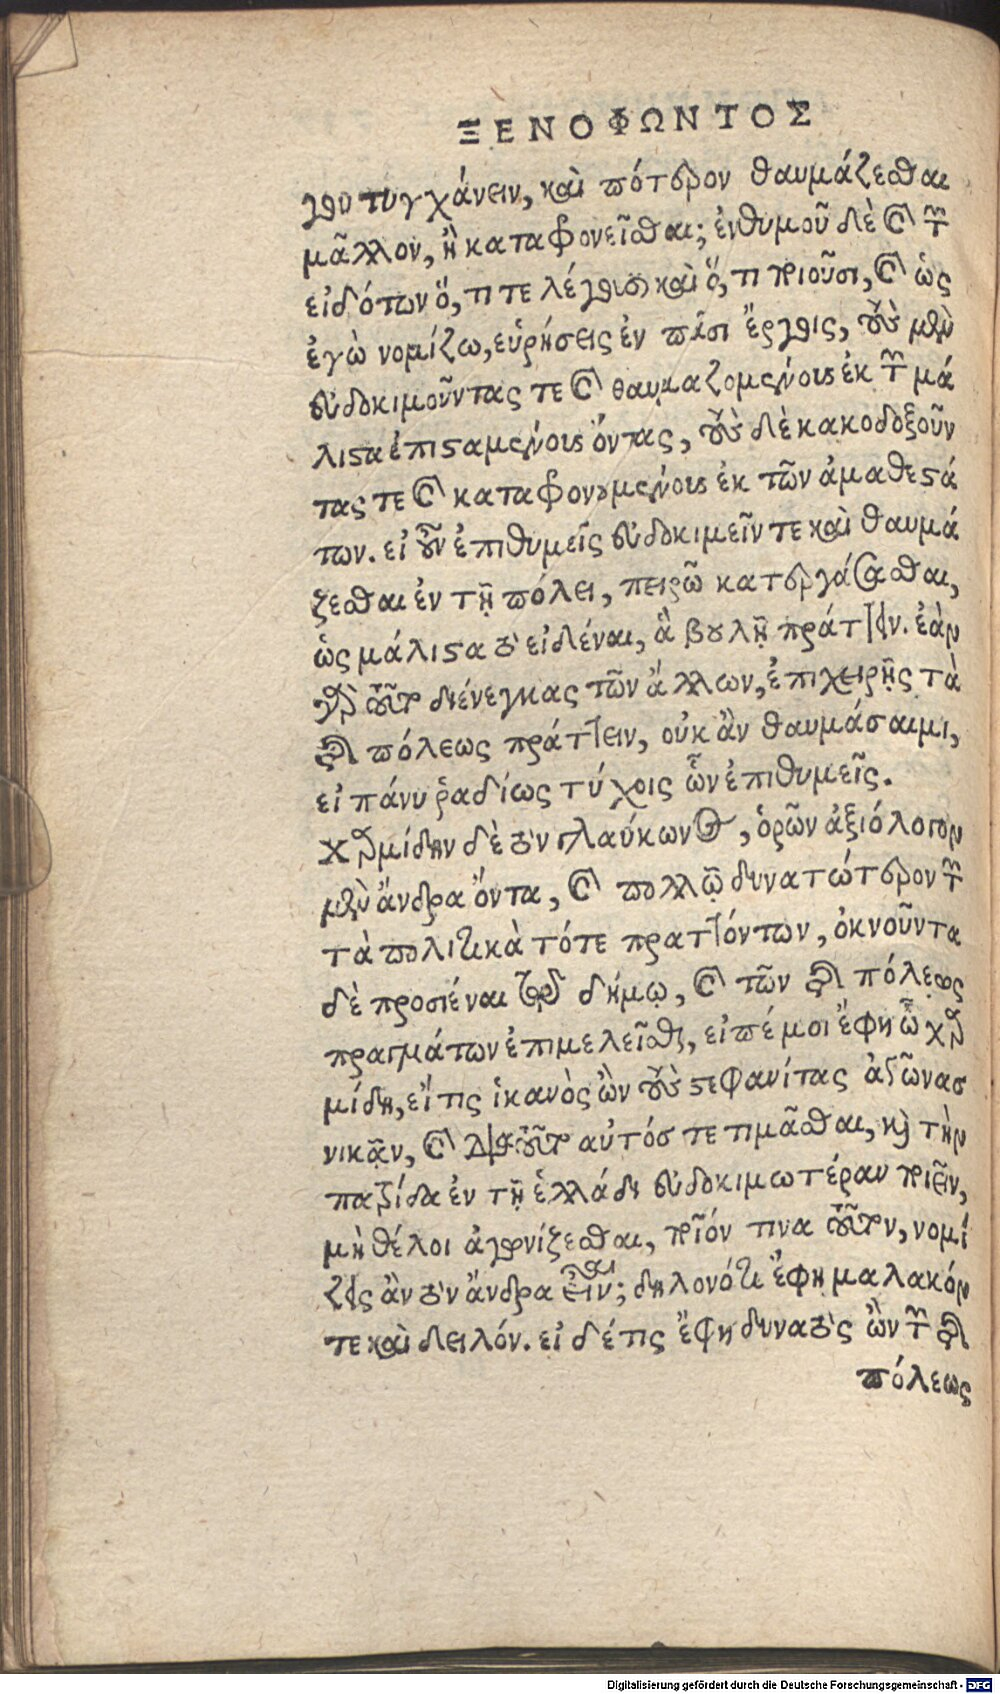 ΞΕΝΟΦΩΝΤΟΣ
γου τυγχάνειν, καὶ πότερον θαυμάζεσθαι
μᾶλλον, ἢ καταφρονεῖσθαι; ἐνθυμοῦ δὲ καὶ τῶν
εἰδότων ὅ, τι τε λέγουσι καὶ ὅ, τι ποιοῦσι, καὶ ὡς
ἐγὼ νομίζω, εὑρήσεις ἐν πᾶσι ἔργοις, τοὺς μὲν
εὐδοκιμοῦντας τε καὶ θαυμαζομένους ἐκ τῶν μά
λιστα ἐπισταμένους ὄντας, τοὺς δὲ κακοδοξοῦν
τας τε καὶ καταφρονουμένους ἐκ τῶν ἀμαθεστά
των. εἰ οὖν ἐπιθυμεῖς εὐδοκιμεῖν τε καὶ θαυμά
ζεσθαι ἐν τῇ πόλει, πειρῶ κατεργάσασθαι,
ὡς μάλιστα τὸ εἰδέναι, ἃ βουλῇ πράττειν. ἐὰν
γὰρ τούτῳ διένεγκας τῶν ἄλλων, ἐπιχειρῇς τὰ
τῆς πόλεως πράττειν, οὐκ ἂν θαυμάσαιμι,
εἰ πάνυ ῥαδίως τύχοις ὧν ἐπιθυμεῖς.
χαρμίδην δὲ τὸν γλαύκωνος, ὁρῶν ἀξιόλογον
μὲν ἄνδρα ὄντα, καὶ πολλῷ δυνατώτερον τῶν
τὰ πολιτικὰ τότε πραττόντων, ὀκνοῦντα
δὲ προσιέναι τῷ δήμῳ, καὶ τῶν τῆς πόλεως
πραγμάτων ἐπιμελεῖσθαι, εἰπέ μοι ἔφη ὦ χαρ
μίδη, εἴ τις ἱκανὸς ὢν τοὺς στεφανίτας ἀγῶνας
νικᾷν, καὶ διὰ τοῦτο αὐτός τε τιμᾶσθαι, καὶ τὴν
πατρίδα ἐν τῇ ἑλλάδι εὐδοκιμωτέραν ποιεῖν,
μὴ θέλοι ἀγωνίζεσθαι, ποῖόν τινα τοῦτον, νομί
ζεις ἂν τὸν ἄνδρα εἶναι; δηλονότι ἔφη μαλακόν
τε καὶ δειλόν. εἰ δέ τις ἔφη δυνατὸς ὢν τῶν τῆς
πόλεως
Digitalisierung gefördert durch die Deutsche Forschungsgemeinschaft - DFG